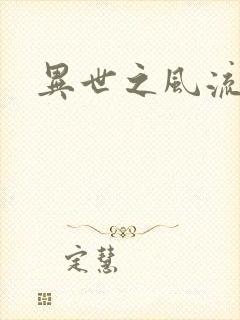 異世之風流
定慧